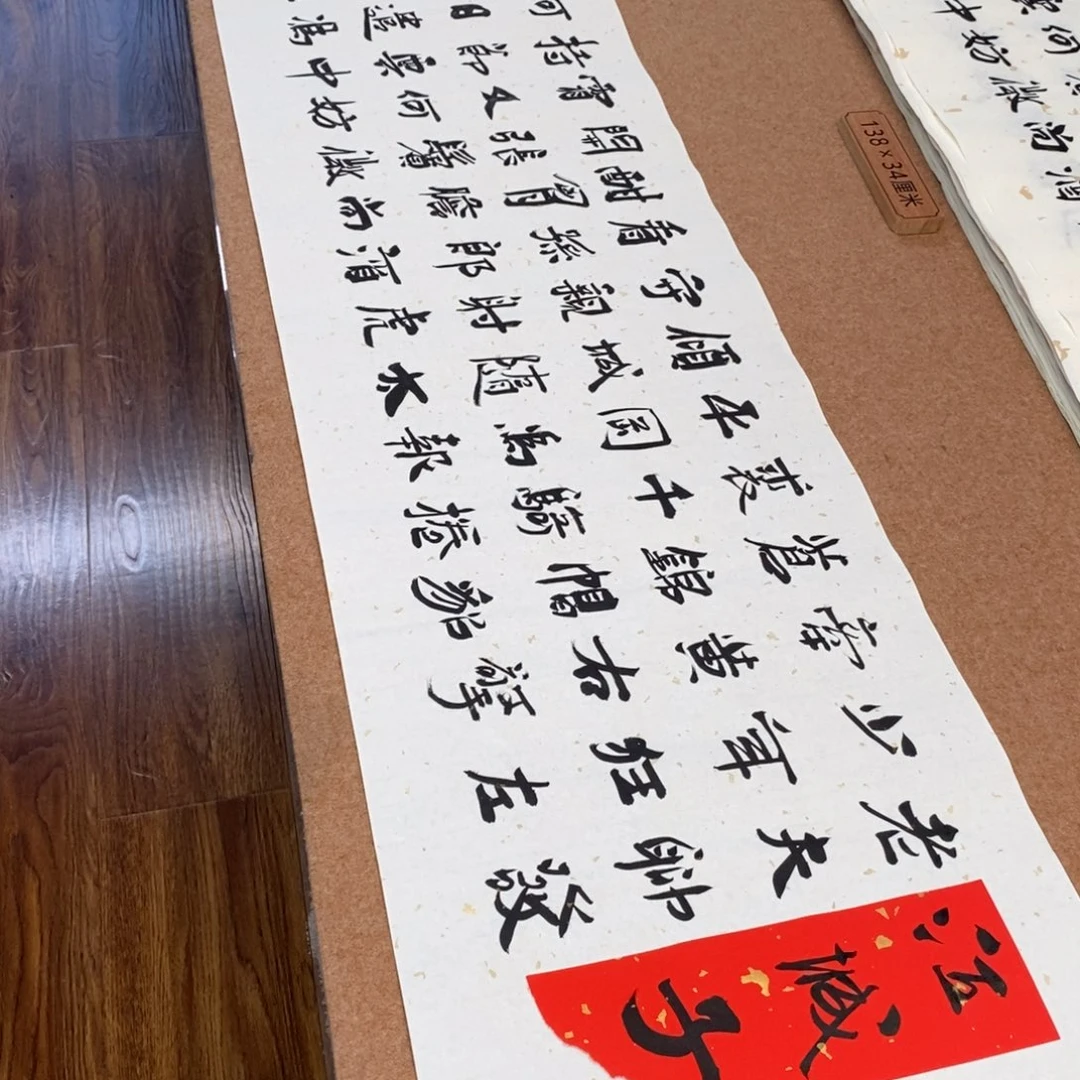 江城子
老夫聊發
少年狂左
牽黃右擎
蒼錦帽貂
裘千騎捲
平岡為報
傾城隨太
守親射虎
看孫郎酒
酣胸膽尚
開張鬢微
霜又何妨
持節雲中
何日遣馮
138×34厘米
雲中
何妨
微
尚
酒